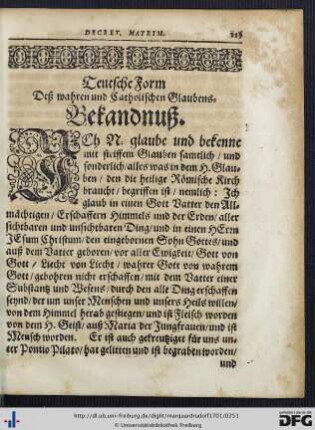 DECRET. MATRIM.
Teutsche Form
Deß wahren und Catholischen Glaubens-
Bekandnuß.
ICh N. glaube und bekenne
mit steiffem Glauben samtlich / und
sonderlich / alles was in dem H. Glau-
ben / den die heilige Römische Kirch
braucht / begriffen ist / nemlich: Jch
glaub in einen Gott Vatter den All-
mächtigen / Erschaffern Himmels und der Erden / aller
sichtbaren und unsichtbaren Ding / und in einen HErrn
JEsum Christum / den eingebornen Sohn Gottes / und
auß dem Vatter geboren / vor aller Ewigkeit / Gott von
Gott / Liecht von Liecht / wahrer Gott von wahrem
Gott / gebohrn nicht erschaffen / mit dem Vatter einer
Substantz und Wesens / durch den alle Ding erschaffen
seynd / der um unser Menschen und unsers Heils willen /
von dem Himmel herab gestiegen / und ist Fleisch worden
von dem H. Geist / auß Maria der Jungfrauen / und ist
Mensch worden. Er ist auch gekreutziget für uns un-
ter Pontio Pilato / hat gelitten und ist begraben worden /
und
http://dl.ub.uni-freiburg.de/diglit/marquardrudolf1701/0251
© Universitätsbibliothek Freiburg
gefördert durch die
DFG